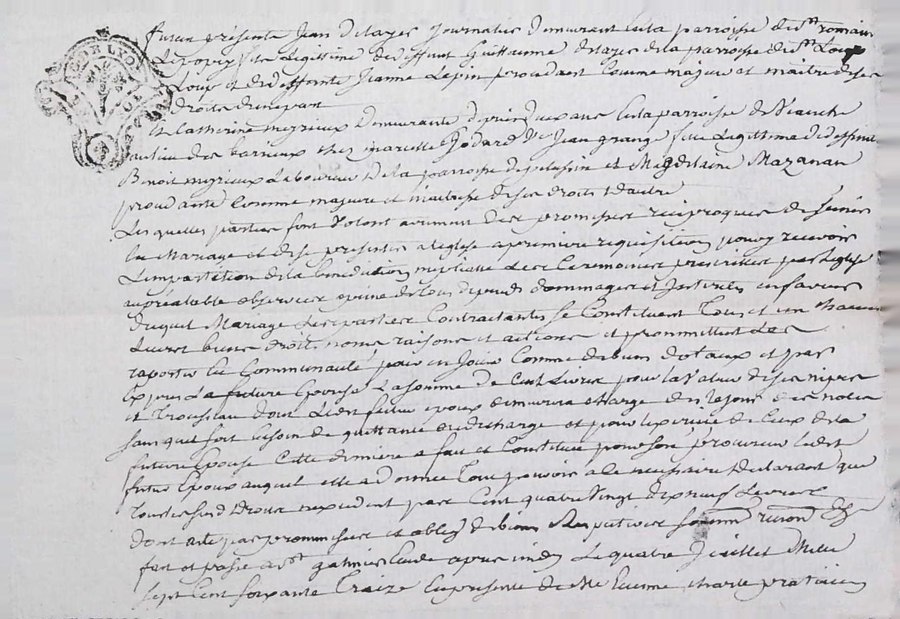 DE LYON
Furent présents Jean delayes Journalier demeurant en la parroisse de St romain
Le popey fils Legitime de deffunt Guillaume delayes de la parroisse de St Loup
Loup et de deffunte Jeanne Lepin procedant Comme majeur et maitre de ses
Droits d'une part
Et Catherine meyrieux Demeurante depuis deux ans en la parroisse de
au lieu des barreaux chez marcelle Godard Ve Jean grange fille Legittime de deffunt
Benoit meyrieux Laboureur de la parroisse de et Magdelaine Mazanau
procedante Comme majeure et maitresse de ses droits d'autre
Lesquelles parties font Volontairement Les promesses reciproques de s'unir
en Mariage et de se presenter a leglise a premiere requisition pour y recevoir
L'impartition de la benediction nuptialle Les Ceremonies prescrittes par Leglise
au prealable observées a peine de tous depends dommages et Interests en faveur
duquel Mariage Les parties Contractantes se Constituent Tous et un Chacun
Leurs biens droits noms raisons et actions et promettent Les
raporter en Communauté pour en Jouir Comme de biens dotaux et par
exprès La future Epouse La somme de Cent Livres pour la Valeur de ses nipes
et Trousseau dont Ledit futur epoux demeurera chargé des le jour de ses noces
sans quil soit besoin de quittance ou decharge et pour lexercice de Ceux de la
future Epouse Cette derniere a fait et Constitué pour son procureur Ledit
futur Epoux auquel elle a donnée Tout pouvoir a le necessaire Declarant que
Tous les susd Droits nexcedent pas Cent quatre Vingt dix neuf Livres
Dont acte par promesses et oblig de biens Respectives renon Etc
fait et passé a St galmier etude apres midy Le quatre Juillet Mille
sept Cent soixante Traize En presence de Me Etienne charle praticien